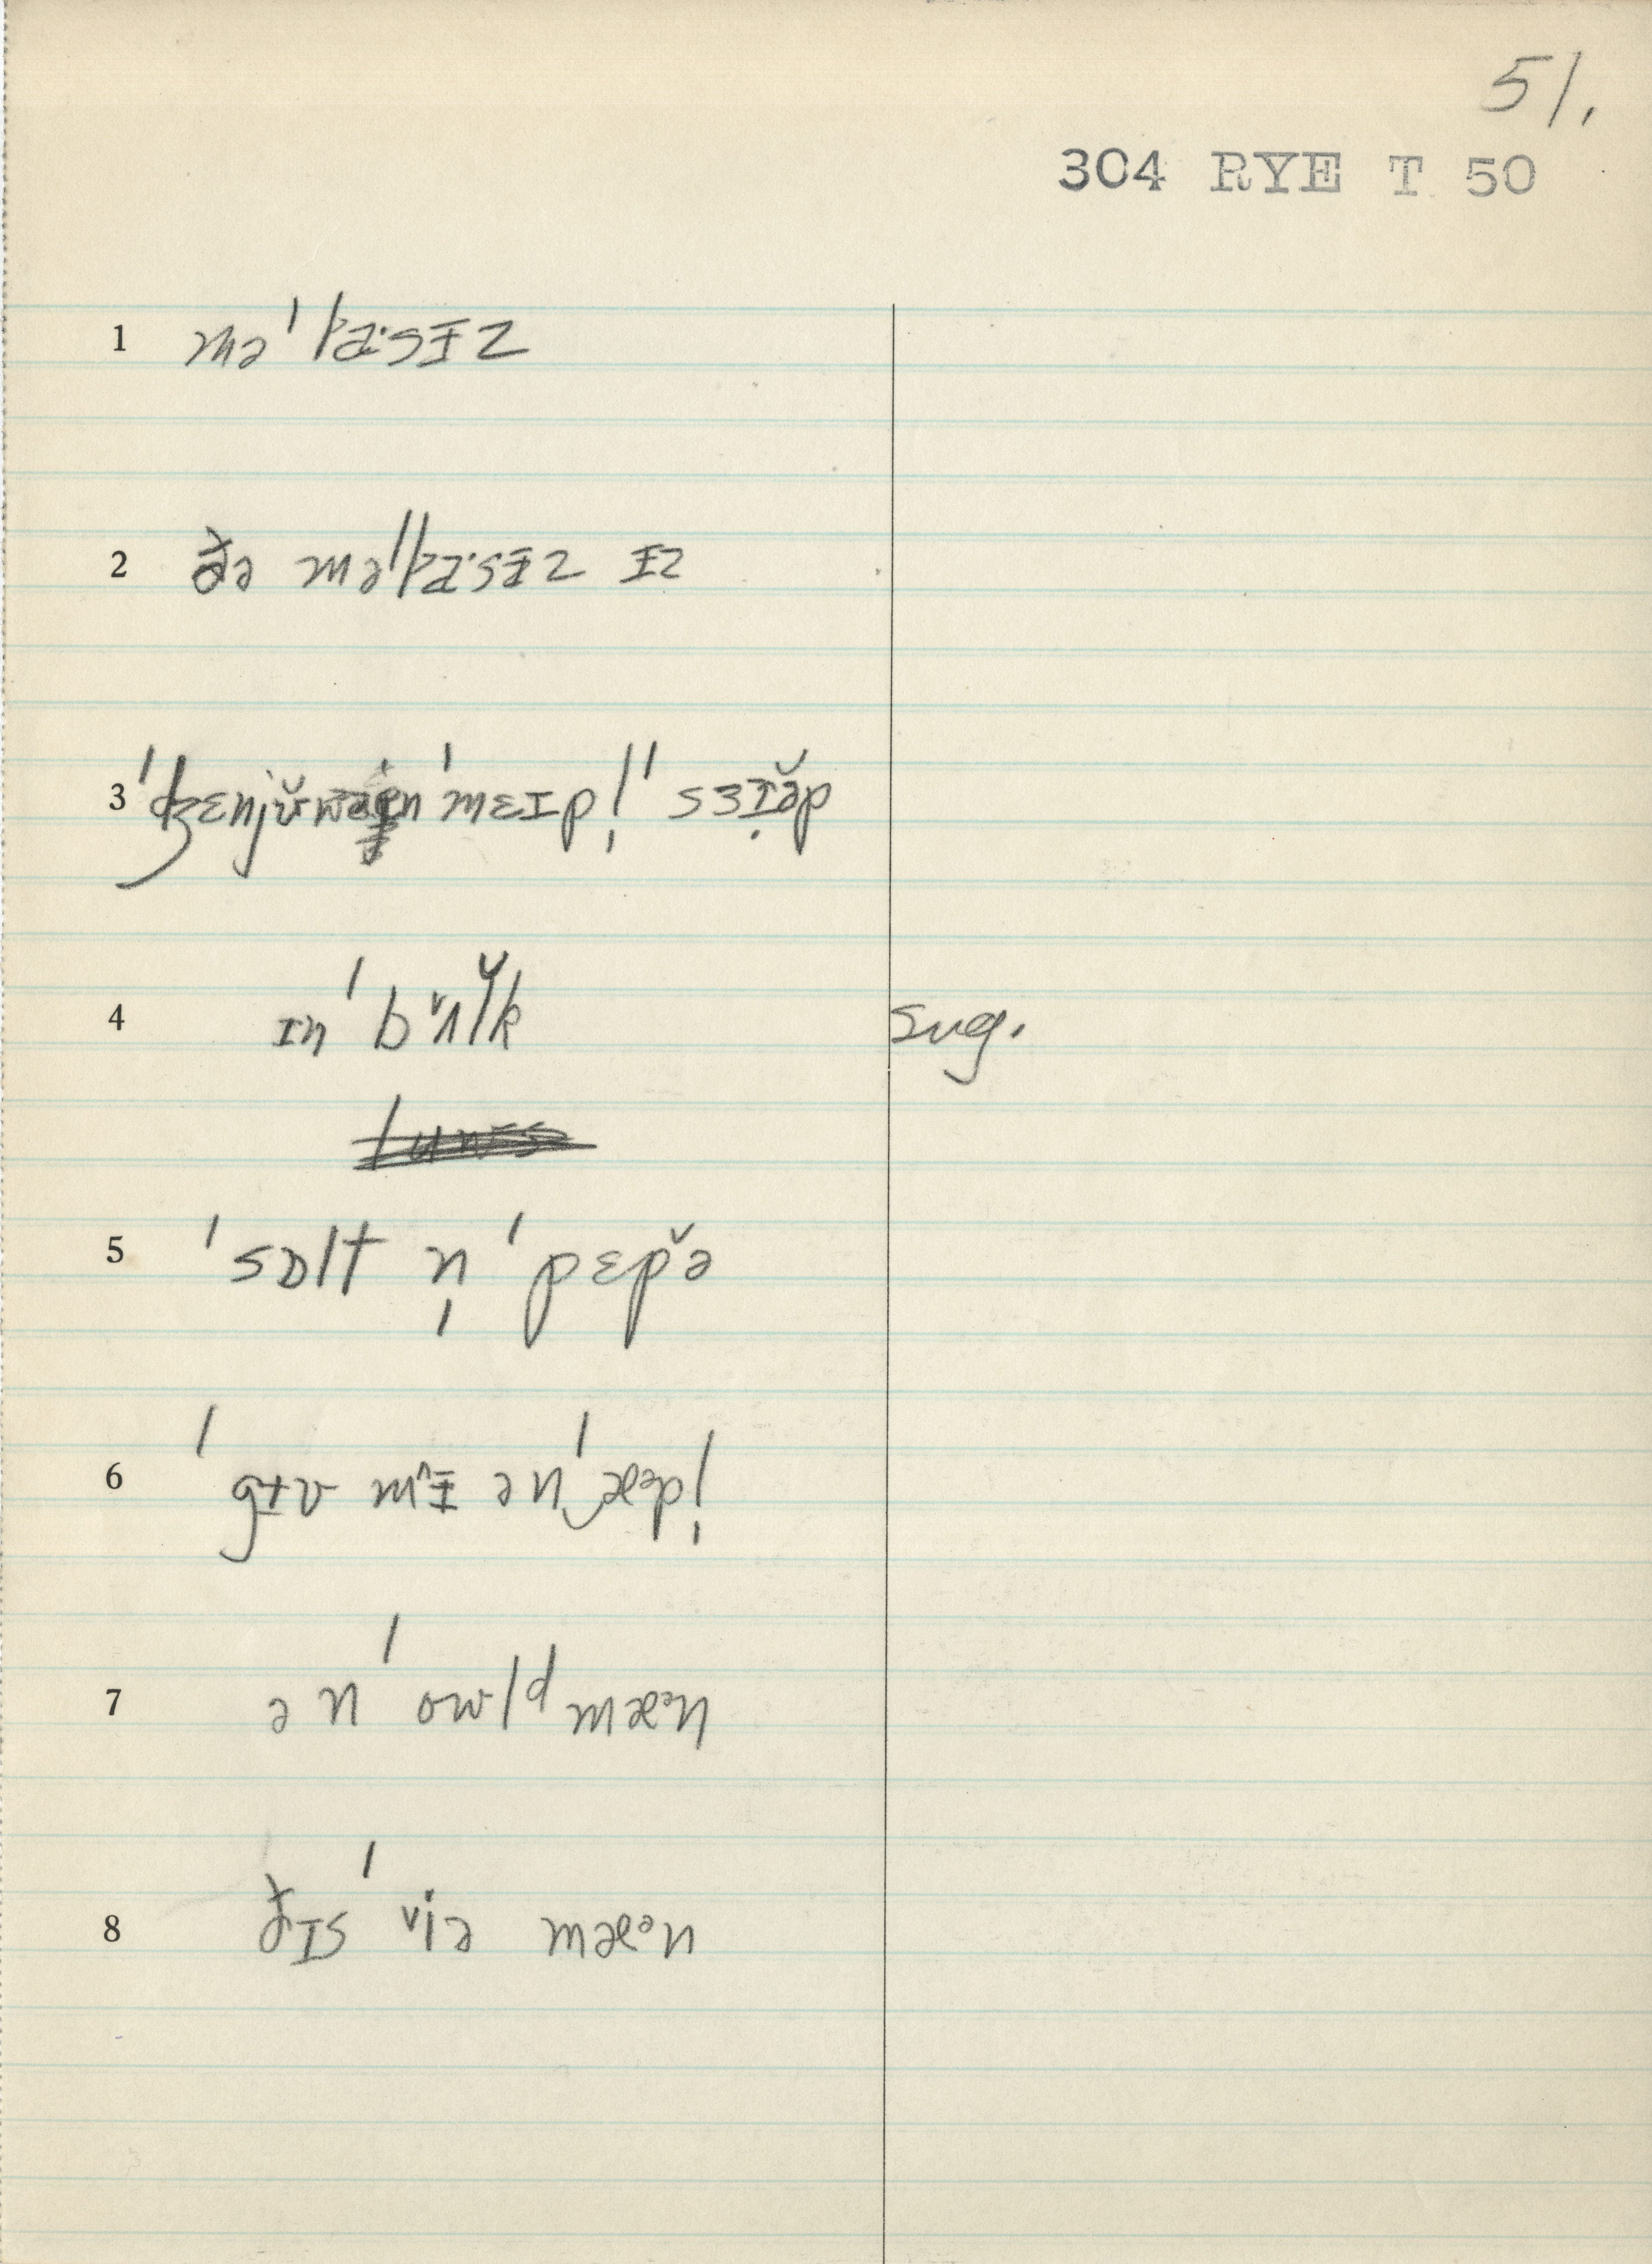 51.
304 RYE T 50
1 mə'lasɨz
2 ðə mə'lasɨz ɨz
3 'ʤɛnjŭwən 'mɛɪpl̩ 'sɜɪ̣ə̆p
4 ɪn 'bʌlk sug.
5 'sɒlt n̩ 'pɛpə
6 'gɨv mɨ ən‿'æᵊpl̩
7 ən 'owld mæᵊn
8 ðɪs 'viə mæᵊn